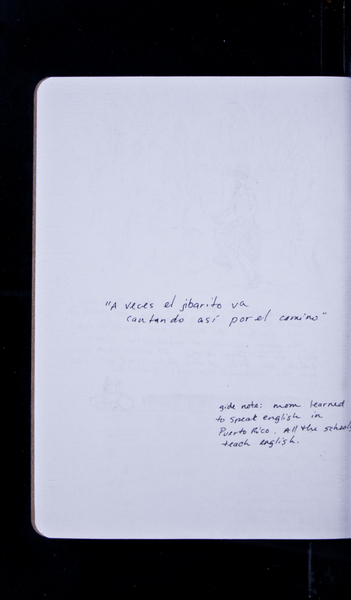 "A veces el jibarito va
cantando así por el camino"
side note: mom learned
to speak english in
Puerto Rico. All the schools
teach english.